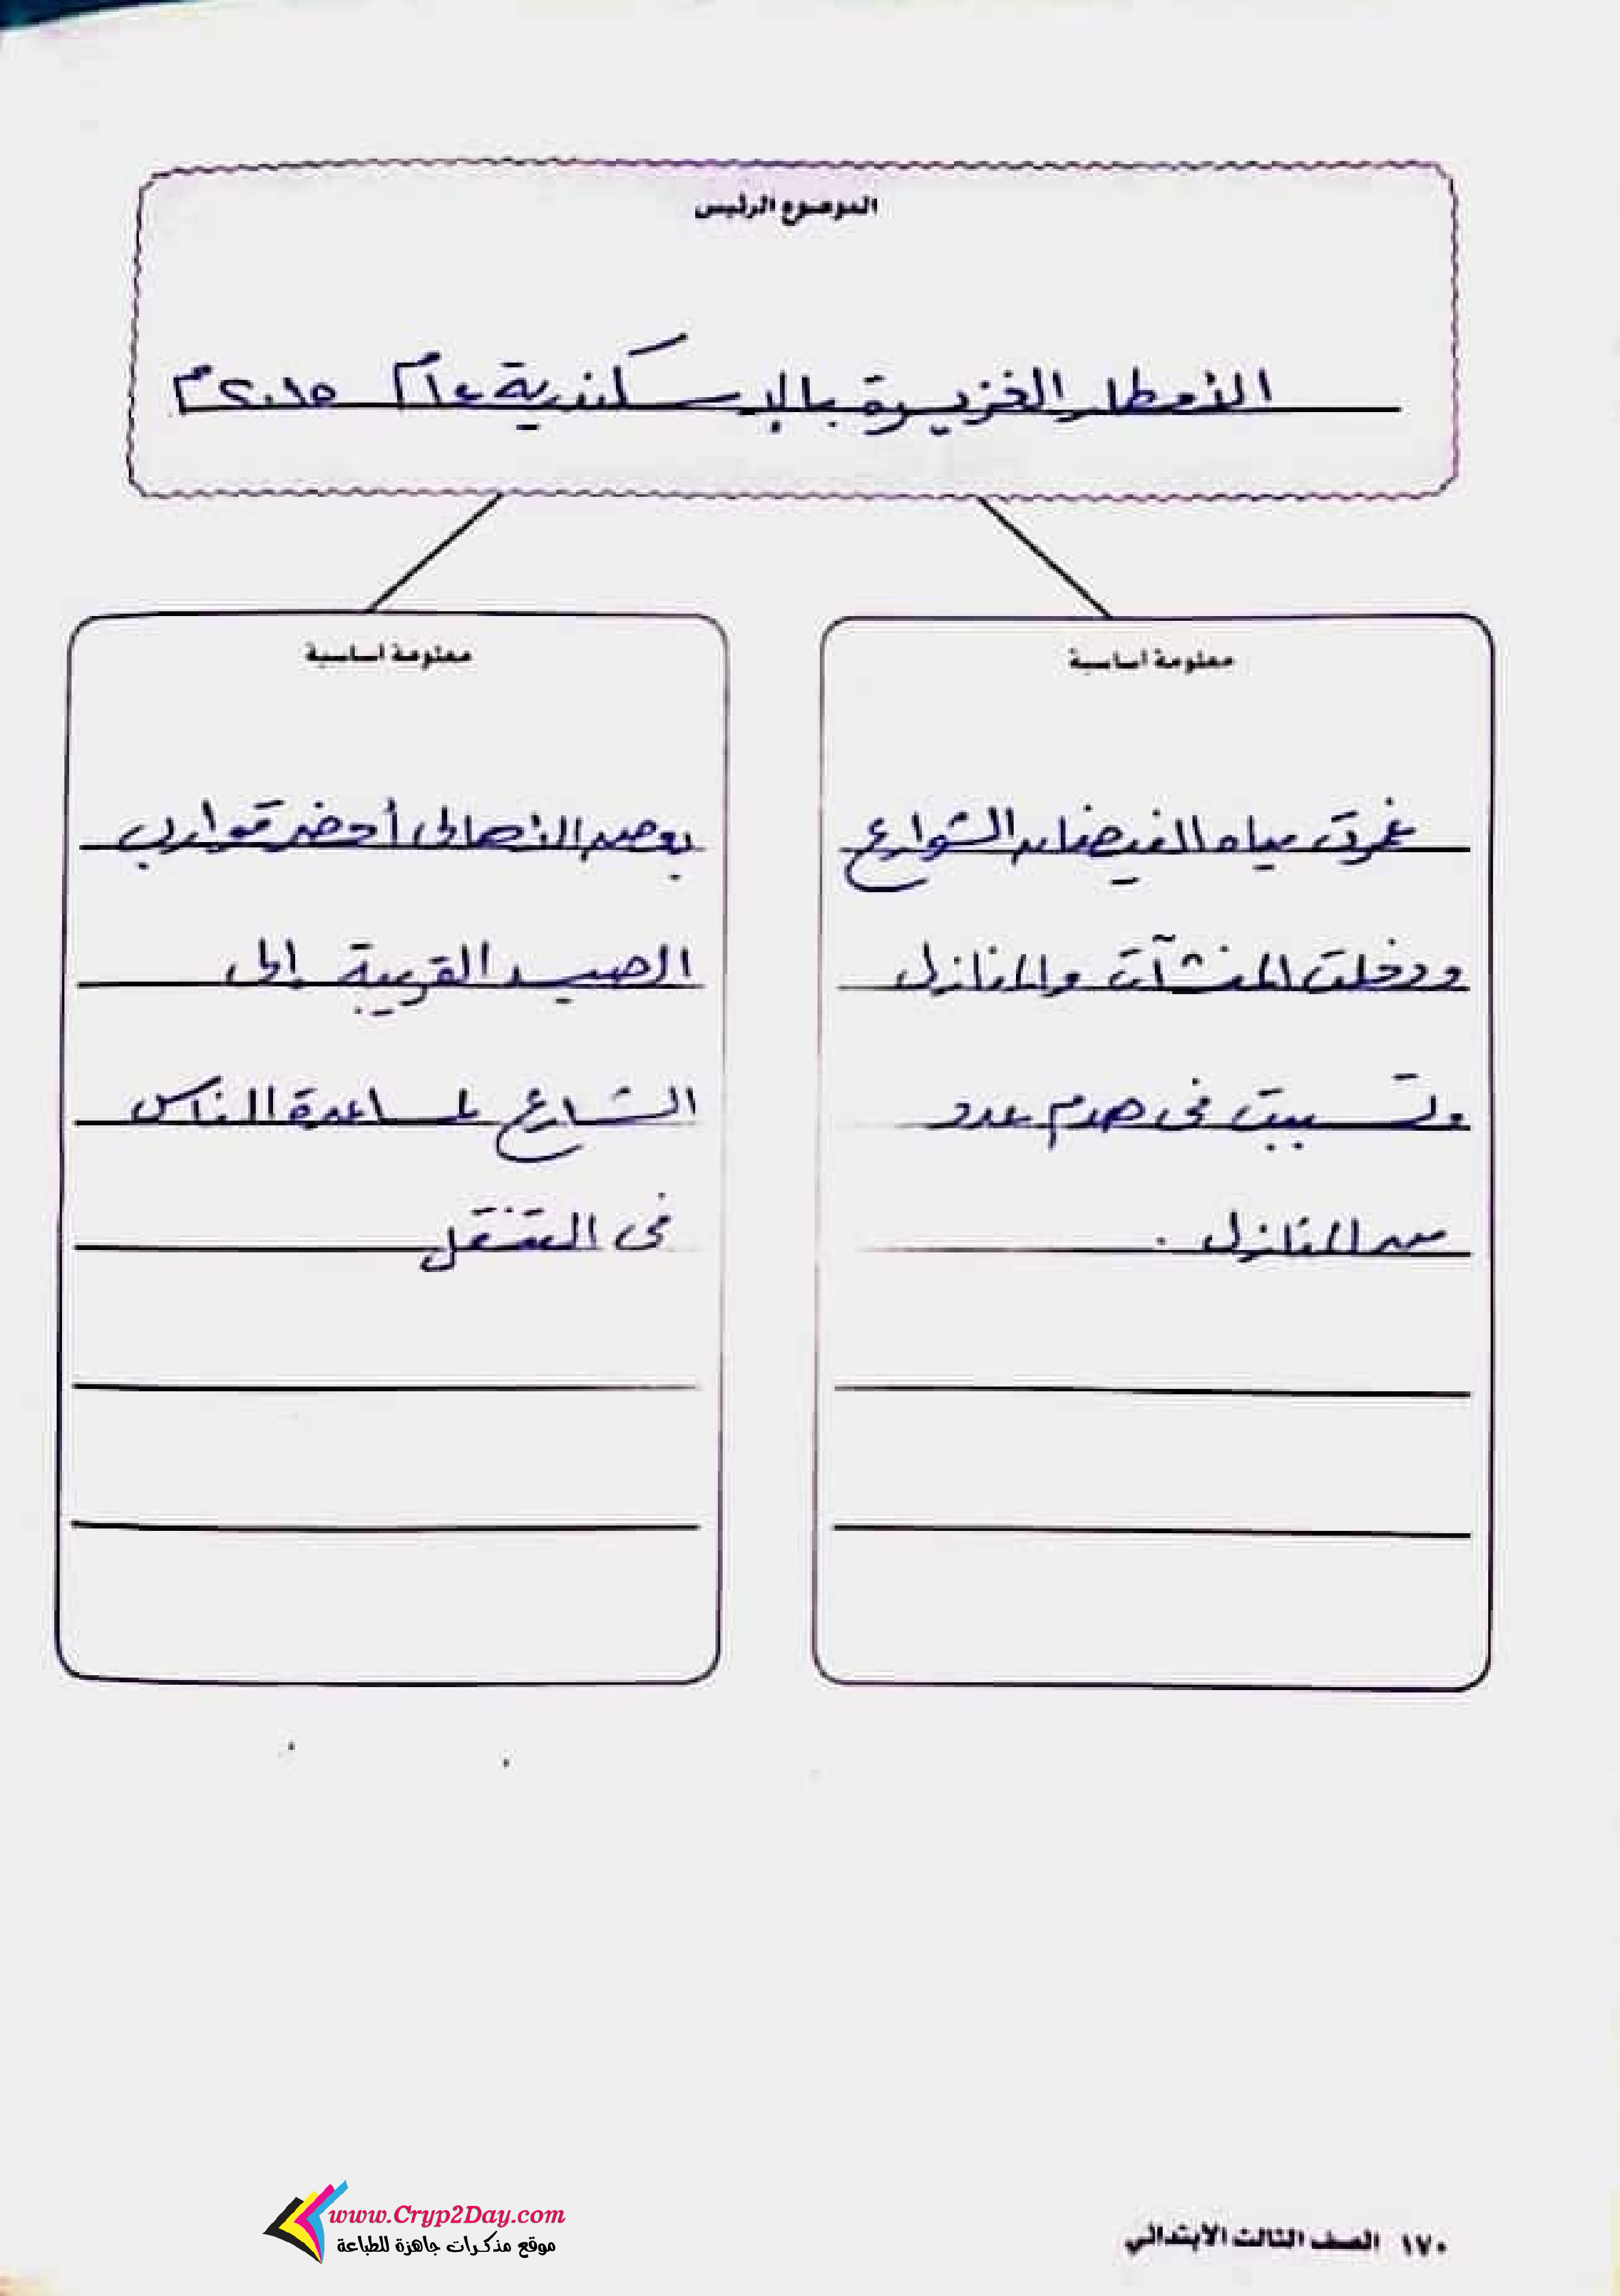 الموضوع الرئيس
الأمطار الغزيرة بالإسكندرية عام ٢٠١٥م
معلومة أساسية
غمرت مياه الفيضان الشوارع
ودخلت المنشآت والمنازل
وتسببت فى هدم عدد
من المنازل .
معلومة أساسية
بعض الأهالى أحضر قوارب
الصيد القريبة إلى
الشارع لمساعدة الناس
فى التنقل
www.Cryp2Day.com
موقع مذكرات جاهزة للطباعة
١٧٠ الصف الثالث الابتدائي